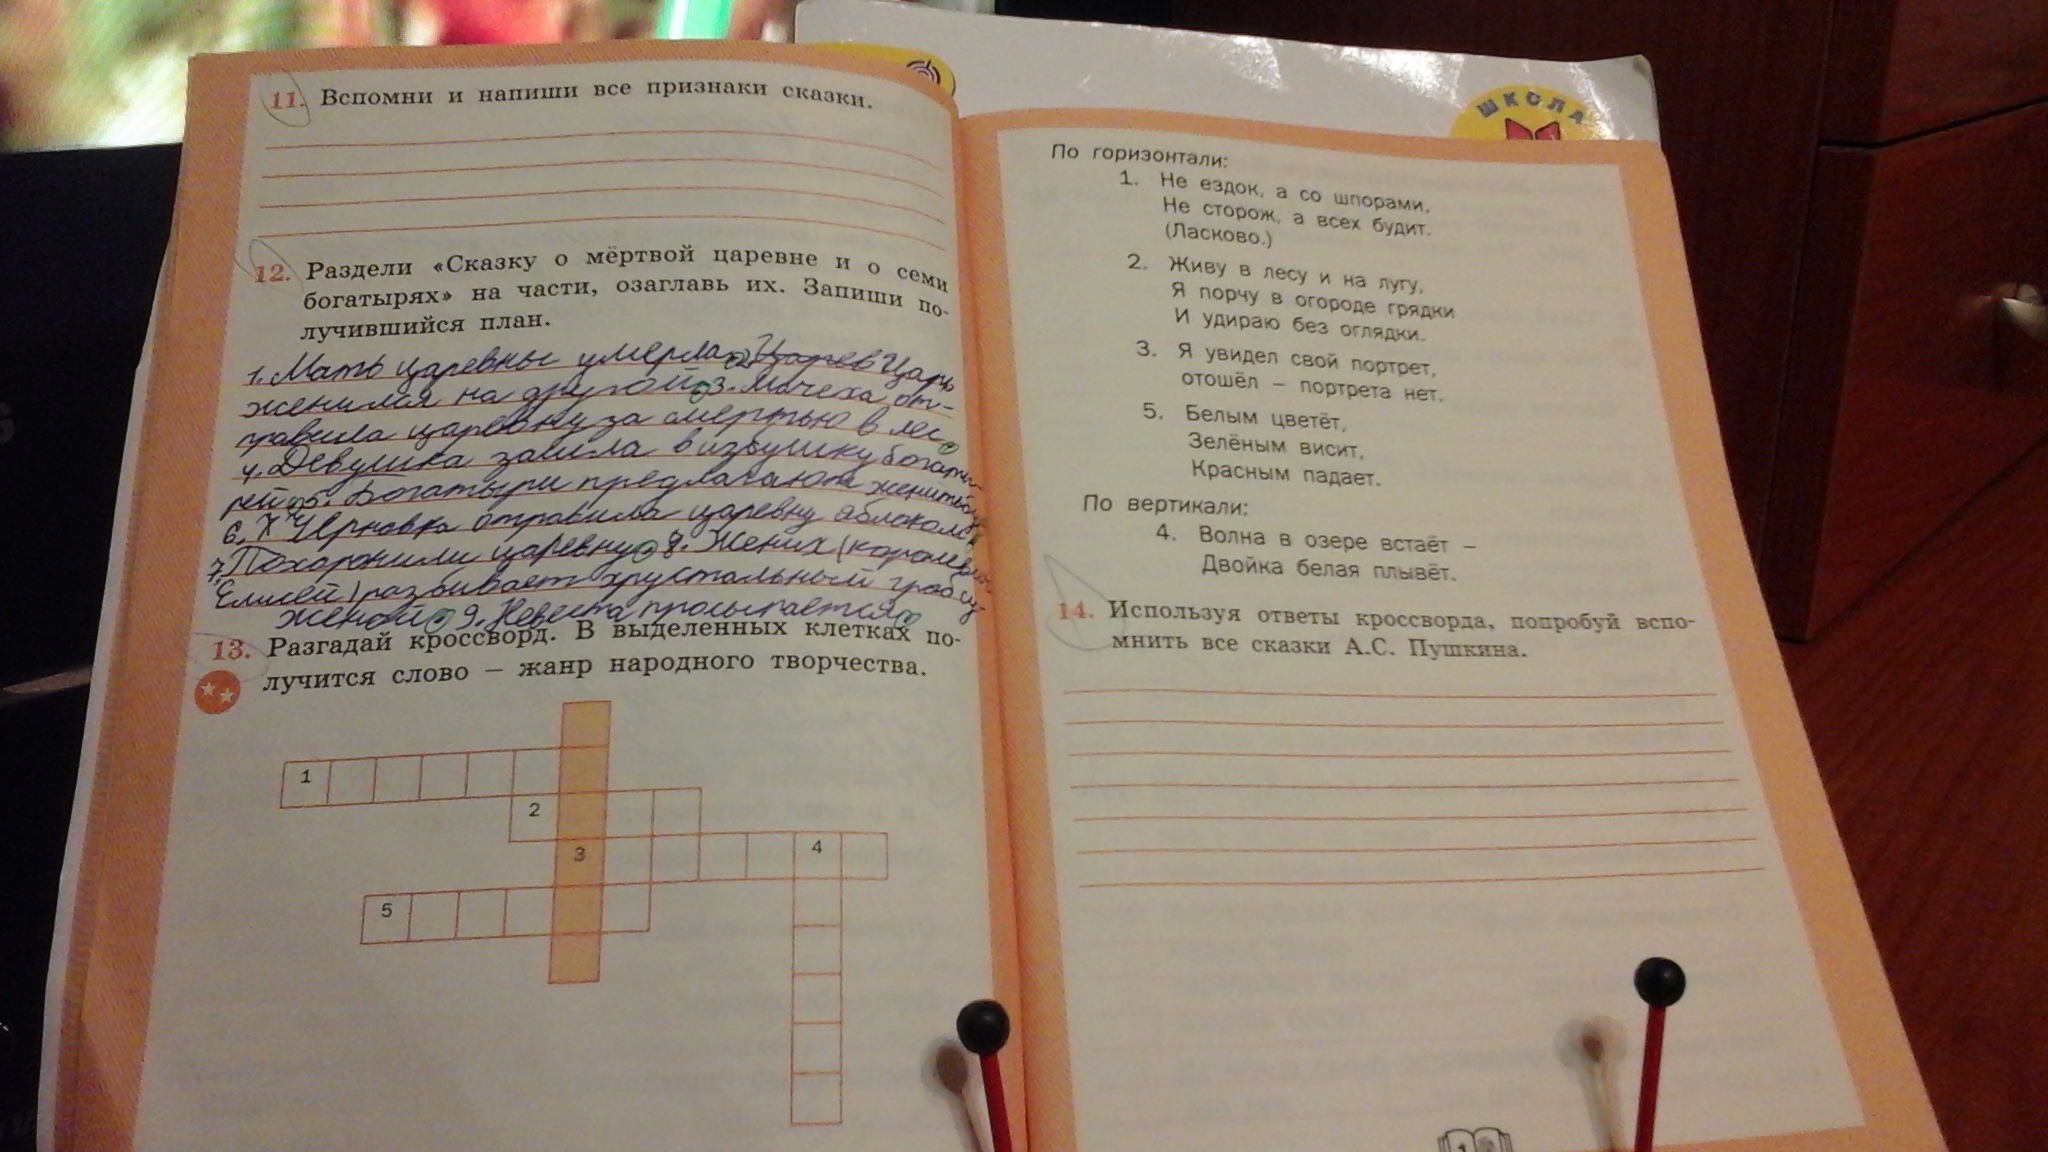 11. Вспомни и напиши все признаки сказки.
12. Раздели «Сказку о мёртвой царевне и о семи
богатырях» на части, озаглавь их. Запиши по-
лучившийся план.
1. Мать царевны умерла. 2. Царь
женился на другой. 3. Мачеха от-
правила царевну за смертью в лес.
4. Девушка зашла в избушку богаты-
рей. 5. Богатыри предлагают
6. Чернавка отравила царевну яблоком.
7. Похоронили царевну. 8. Жених (королевич
Елисей) разбивает хрустальный гроб су-
женой. 9. Невеста просыпается.
13. Разгадай кроссворд. В выделенных клетках по-
лучится слово – жанр народного творчества.
1
2
3 4
5
ШКОЛА
По горизонтали:
1. Не ездок, а со шпорами,
Не сторож, а всех будит.
(Ласково.)
2. Живу в лесу и на лугу,
Я порчу в огороде грядки
И удираю без оглядки.
3. Я увидел свой портрет,
отошёл – портрета нет.
5. Белым цветёт,
Зелёным висит,
Красным падает.
По вертикали:
4. Волна в озере встаёт –
Двойка белая плывёт.
14. Используя ответы кроссворда, попробуй вспо-
мнить все сказки А.С. Пушкина.